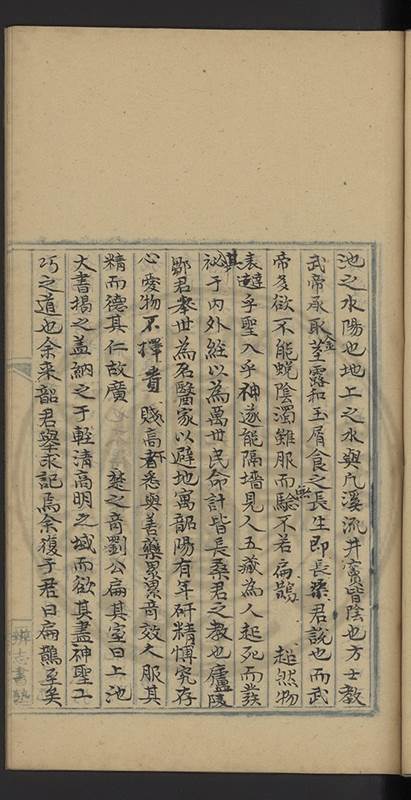 池之水陽也地上之水與凡溪流井竇皆陰也方士教
武帝承取金莖露和玉屑食之長生即長桑君說也而武
帝多欲不能蛻陰濁雖服而無驗不若扁鵲 超然物
表遊乎聖入乎神遂能隔墻見人五藏為人起死而發其
祕于內外經以為萬世民命計皆長桑君之教也廬陵
鄒君奉世為名醫家以避地寓韶陽有年研精慱究存
心愛物不擇貴賤高下者悉與善藥累累奇效人服其
精而德其仁故廣 蹇之奇劉公扁其室曰上池
大書揭之蓋納之于輕清高明之域而欲其盡神聖工
巧之道也余來韶君與求記焉余復于君曰扁鵲至矣
志書塾